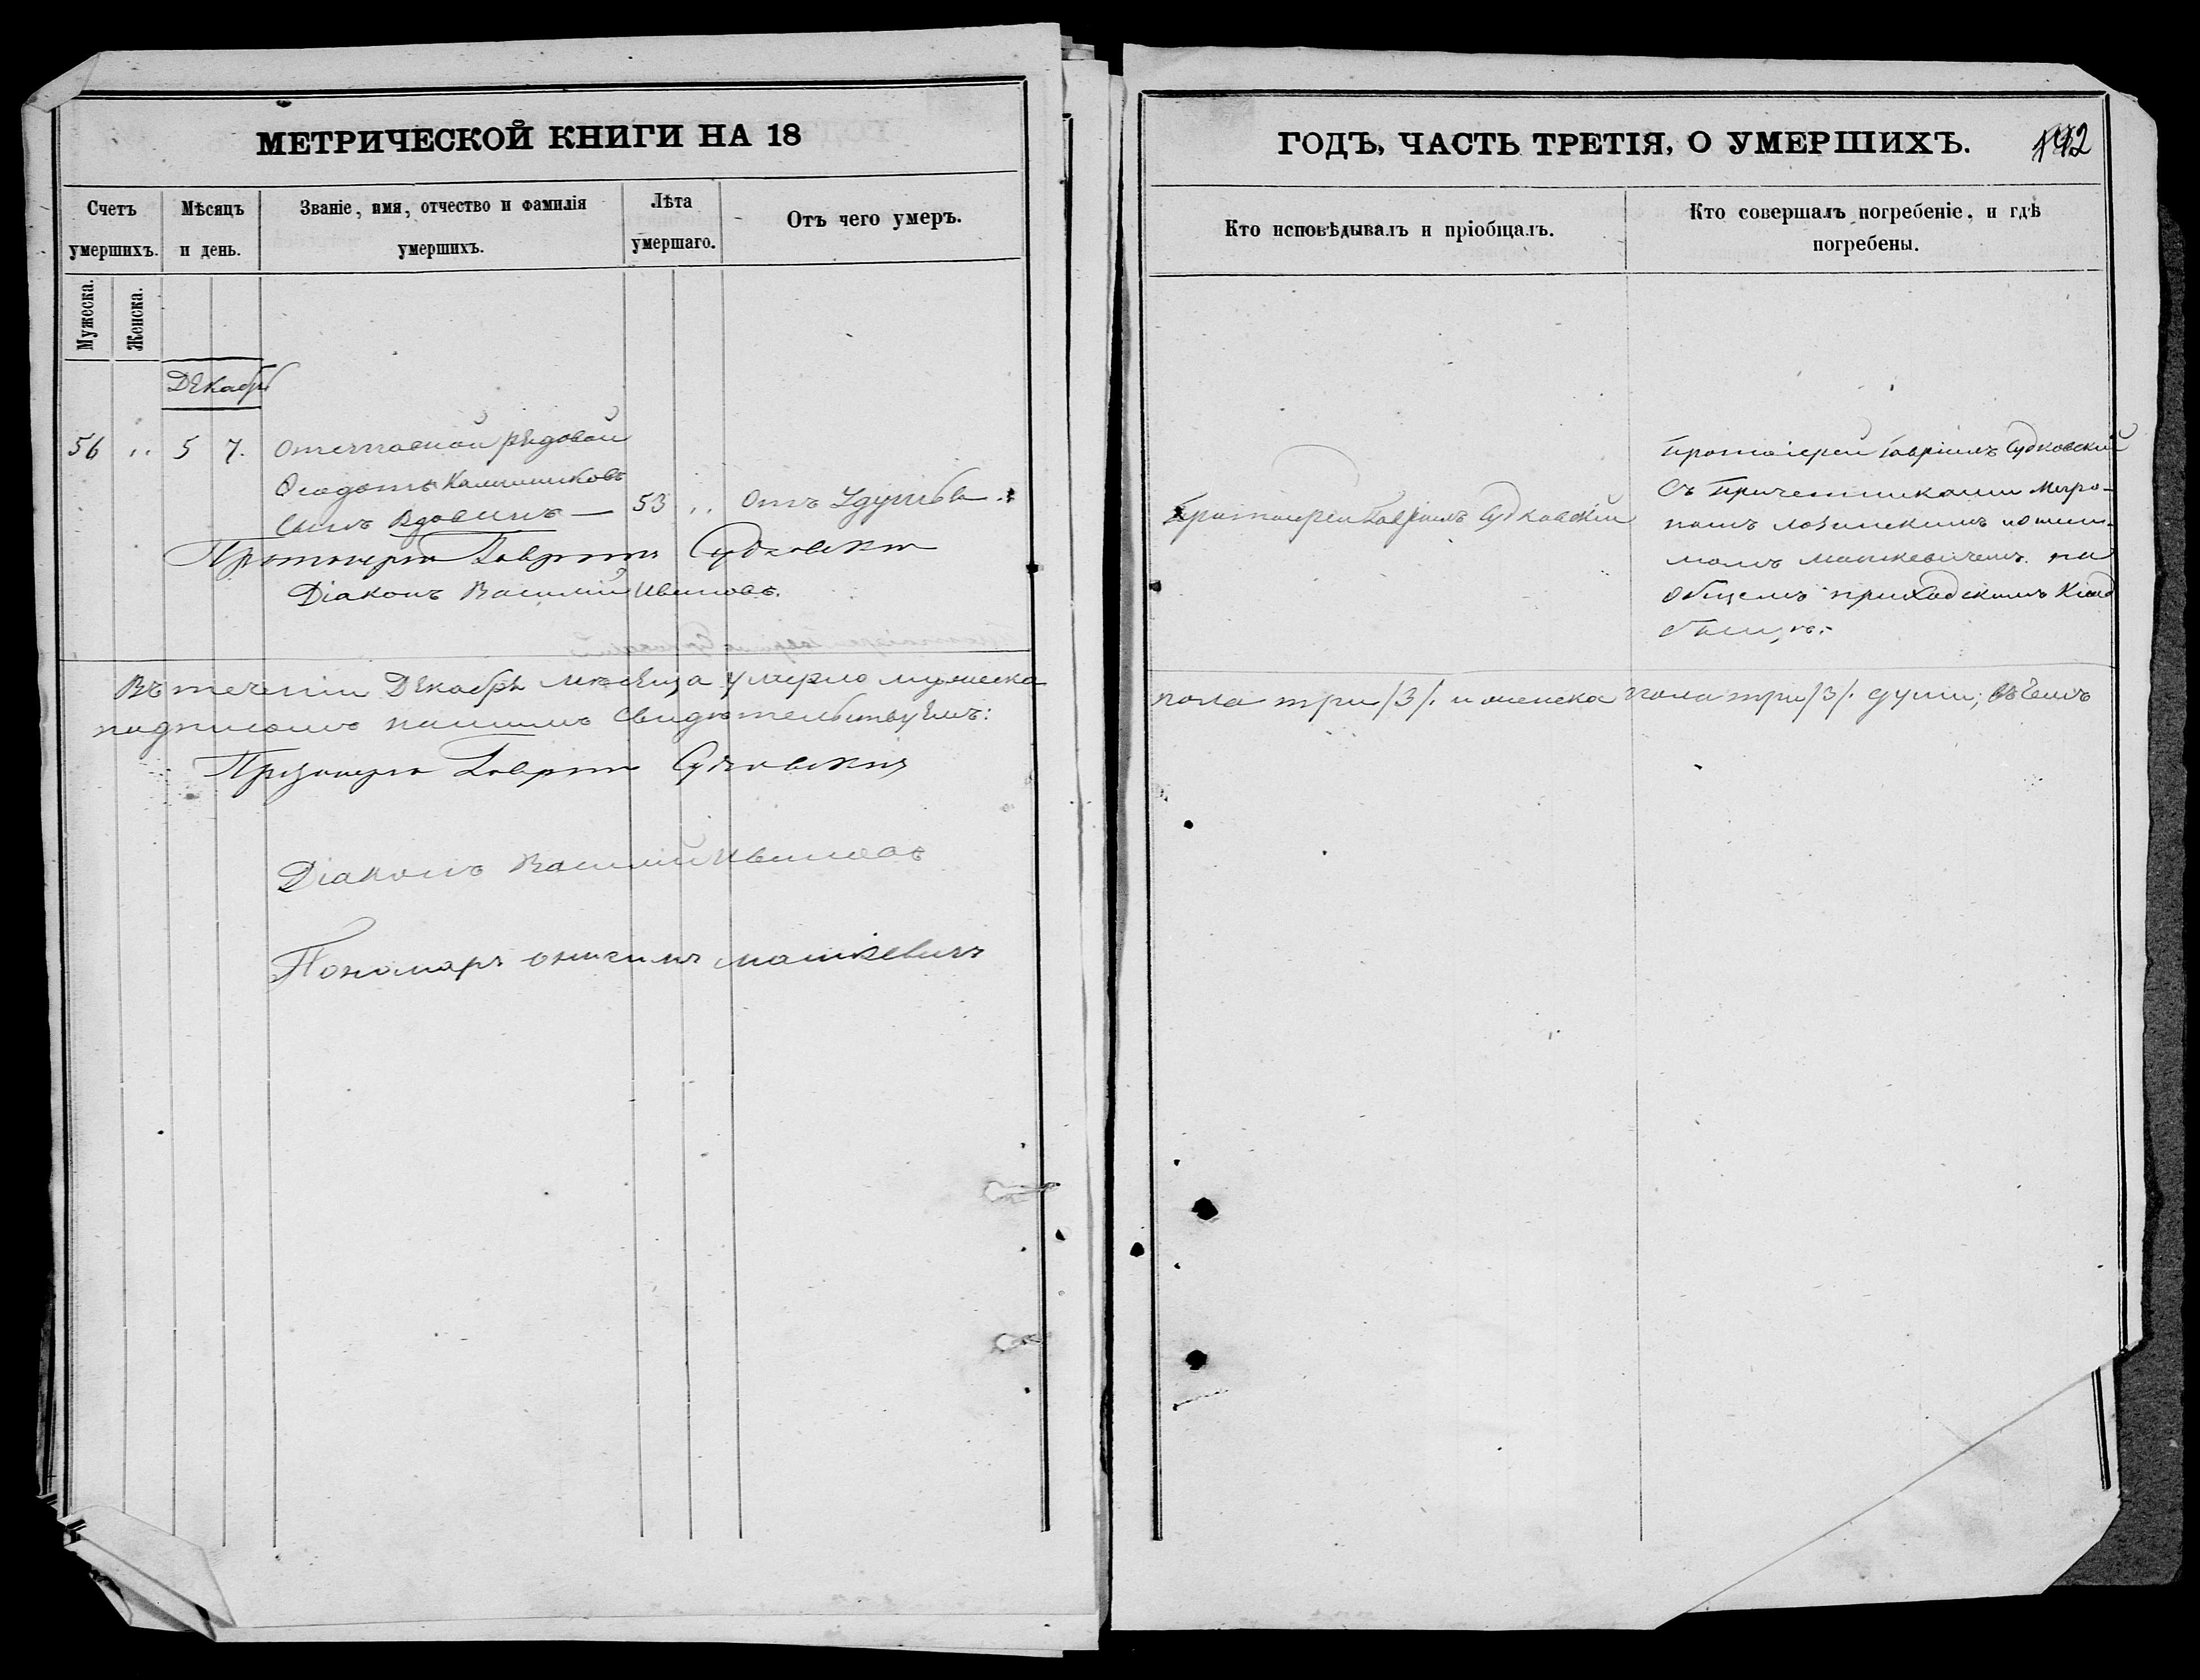 МЕТРИЧЕСКОЙ КНИГИ НА 18
Счетъ умершихъ.
Мѣсяцъ и день.
Званіе, имя, отчество и фамилія умершихъ.
Лѣта умершаго.
Отъ чего умеръ.
Мужеска.
Женска.
Декабрь
56 " 5 7. Отставной рядовой
Ѳеодотъ Калинниковъ
сынъ Вдовинъ — 53 " Отъ Удушья.
Протоіерей Гавріилъ Судковскій
Діаконъ Василій Ивановъ.
Въ теченіи Декабря мѣсяца умерло мужеска
подписомъ нашимъ свидѣтельствуемъ:
Протоіерей Гавріилъ Судковскій
Діаконъ Василій Ивановъ
Пономарь Онисимъ Машкевичъ
ГОДЪ, ЧАСТЬ ТРЕТІЯ, О УМЕРШИХЪ.
Кто исповѣдывалъ и пріобщалъ.
Кто совершалъ погребеніе, и гдѣ погребены.
Протоіерей Гавріилъ Судковскій
Протоіерей Гавріилъ Судковскій
съ Причетниками
на
общемъ приходскомъ Клад
бищѣ.
пола три /3/. и женска пола три /3/. души; въ чемъ